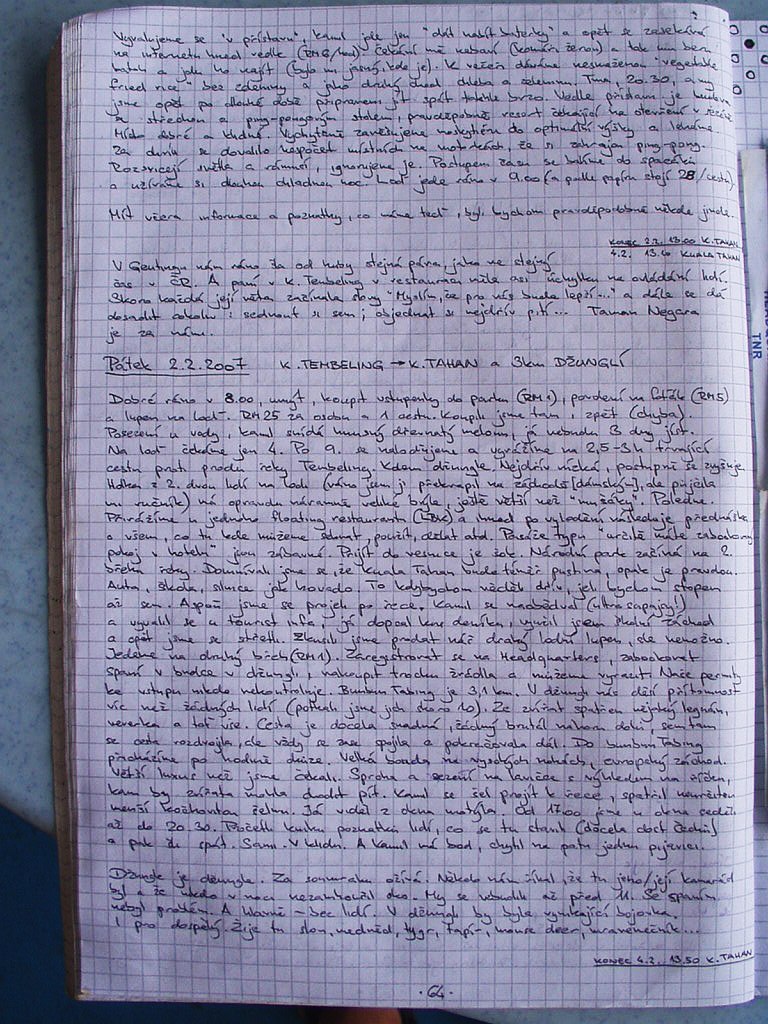 Vyvalujeme se "v přístavu", Kamil jde jen "dát nabít baterky" a opět se zasekává
na internetu hned vedle (RM6/hod). Čekání mě nebaví (komáři žerou) a tak mu beru
batoh a jdu ho najít (bylo mi jasný, kde je). K večeři dáváme nesmaženou "vegetable
fried rice" bez zeleniny a jako druhý chod chleba se zeleninou. Tma, 20.30, a my
jsme opět po dlouhé době připraveni jít spát takhle brzo. Vedle přístavu je budova
se střechou a ping-pongovým stolem, pravděpodobně resort čekající na otevření v
Místo dobré a klidné. Vychytaně zavěšujeme moskytiéru do optimální výšky a leháme.
Za chvíli se dovalilo nespočet místních na motorkách, že si zahrajou ping-pong.
Rozsvěcejí světla a rámusí, ignorujeme je. Postupem času se balíme do spacáků
a užíváme si dlouhou chladnou noc. Loď jede ráno v 9.00 (a podle papíru stojí 28/cestu).
Mít včera informace a poznatky, co máme teď, byli bychom pravděpodobně někde jinde.
KONEC 2.2. 13.00 K. TAHAN
4.2. 13.10 KUALA TAHAN
V Gentingu nám ráno šla od huby stejná pára, jako ve stejný
čas v ČR. A paní v K. Tembeling v restauraci měla asi úchylku na ovládání lidí.
Skoro každá její věta začínala slovy "Myslím, že pro vás bude lepší..." a dále se dá
dosadit cokoliv: sednout si sem; objednat si nejdřív pití... Taman Negara
je za námi.
Pátek 2.2.2007 K. TEMBELING → K. TAHAN a 3km DŽUNGLÍ
Dobré ráno v 8.00, umýt, koupit vstupenky do parku (RM1), povolení na foťák (RM5)
a lupen na loď. RM25 za osobu a 1 cestu. Koupili jsme tam i zpět (chyba).
Posezení u vody, Kamil snídá humusný dřevnatý meloun, já nebudu 3 dny jíst.
Na loď čekáme jen 4. Po 9. se naloďujeme a vyrážíme na 2,5-3h trvající
cestu proti proudu řeky Tembeling. Kolem džungle. Nejdřív nízká, postupně se zvyšuje.
Holka z 2. dvou lidí na lodi (ráno jsem ji překvapil na záchodě [dámským], ale půjčila
mi ručník) má opravdu náramně velké brýle, ještě větší než "mušáky". Poledne.
Přirážíme u jednoho floating restaurantu (LBK) a hned po vylodění následuje přednáška
o všem, co tu lze můžeme sehnat, použít, dělat atd. Pasáže typu "určitě máte zabookovaný
pokoj v hotelu" jsou zábavné. Přijít do vesnice je šok. Národní park začíná na 2.
břehu řeky. Domnívali jsme se, že Kuala Tahan bude téměř pustina, opak je pravdou.
Auta, škola, silnice jak hovado. To kdybychom věděli dřív, jeli bychom stopem
až sem. Aspoň jsme se projeli po řece. Kamil se nadbádval (ultra sapajou!)
a vyvalil se u tourist infa, já dopsal kus deníku, využil jsem školní záchod
a opět jsme se střetli. Zkusili jsme prodat náš drahý lodní lupen, ale nemožno.
Jedeme na druhý břeh (RM1). Zaregistrovat se na Headquarters, zabookovat
spaní v boudce v džungli, nakoupit trochu žrádla a můžeme vyrazit. Naše permity
ke vstupu nikdo nekontroluje. Bumbun Tabing je 3,1 km. V džungli nás děsí přítomnost
víc než žádných lidí (potkali jsme jich skoro 10). Ze zvířat spatřen nějaký leguán,
veverka a toť vše. Cesta je docela snadná, žádný brutál nahoru dolů, sem tam
se cesta rozdvojila, ale vždy se zase spojila a pokračovala dál. Do bumbun Tabing
přicházíme po hodině chůze. Velká bouda na vysokých nohách, evropský záchod.
Větší luxus než jsme čekali. Sprcha a sezení na lavičce s výhledem na
kam by zvířata mohla chodit pít. Kamil se šel projít k řece, spatřil
menší kožnatou želvu. Já viděl z okna motýla. Od 17.00 jsme u okna seděli
až do 20.30. Pročetli knihu poznatků lidí, co se tu stavili (docela dost Čechů)
a pak šli spát. Sami. V klidu. A Kamil má bod, chytil na patu jednu pijavici.
Džungle je džungle. Za soumraku ožívá. Někdo nám říkal, že tu jeho/její kamarád
byl a že nikdo v noci nezamhouřil oko. My se vzbudili až před 11. Se spaním
nebyl problém. A hlavně – bez lidí. V džungli by byla vynikající bojovka.
I pro dospělý. Žije tu slon, medvěd, tygr, tapír, mouse deer, mravenečník...
KONEC 4.2. 13.50 K. TAHAN
·64·
TNR